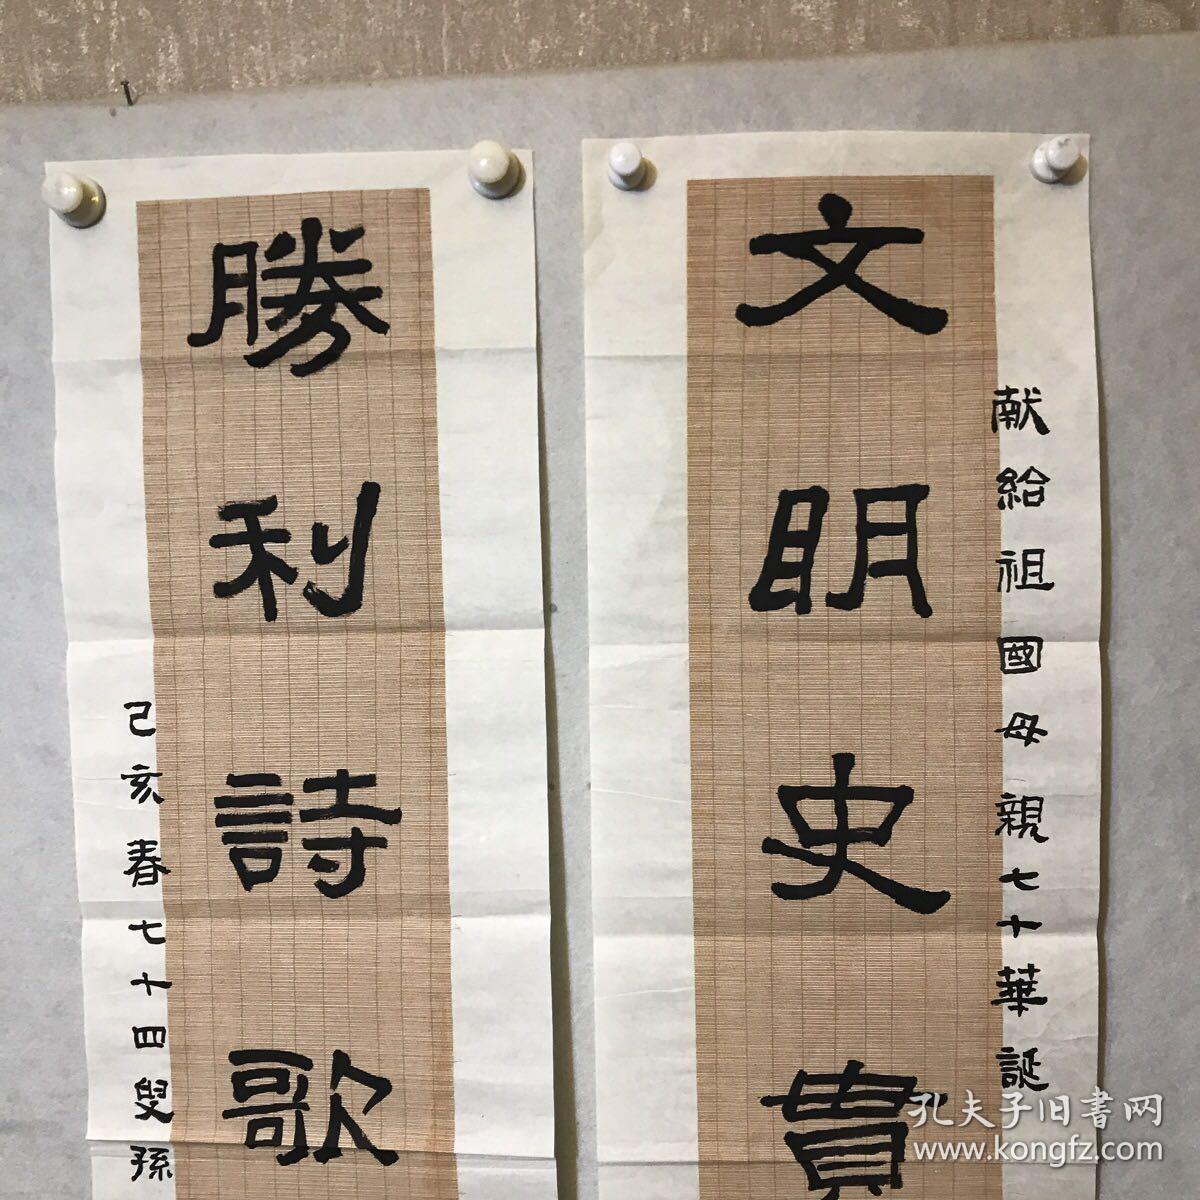 献給祖國母親七十華誕
文明史貫
勝利詩歌
己亥春七十四叟孫
孔夫子旧書网
www.kongfz.com